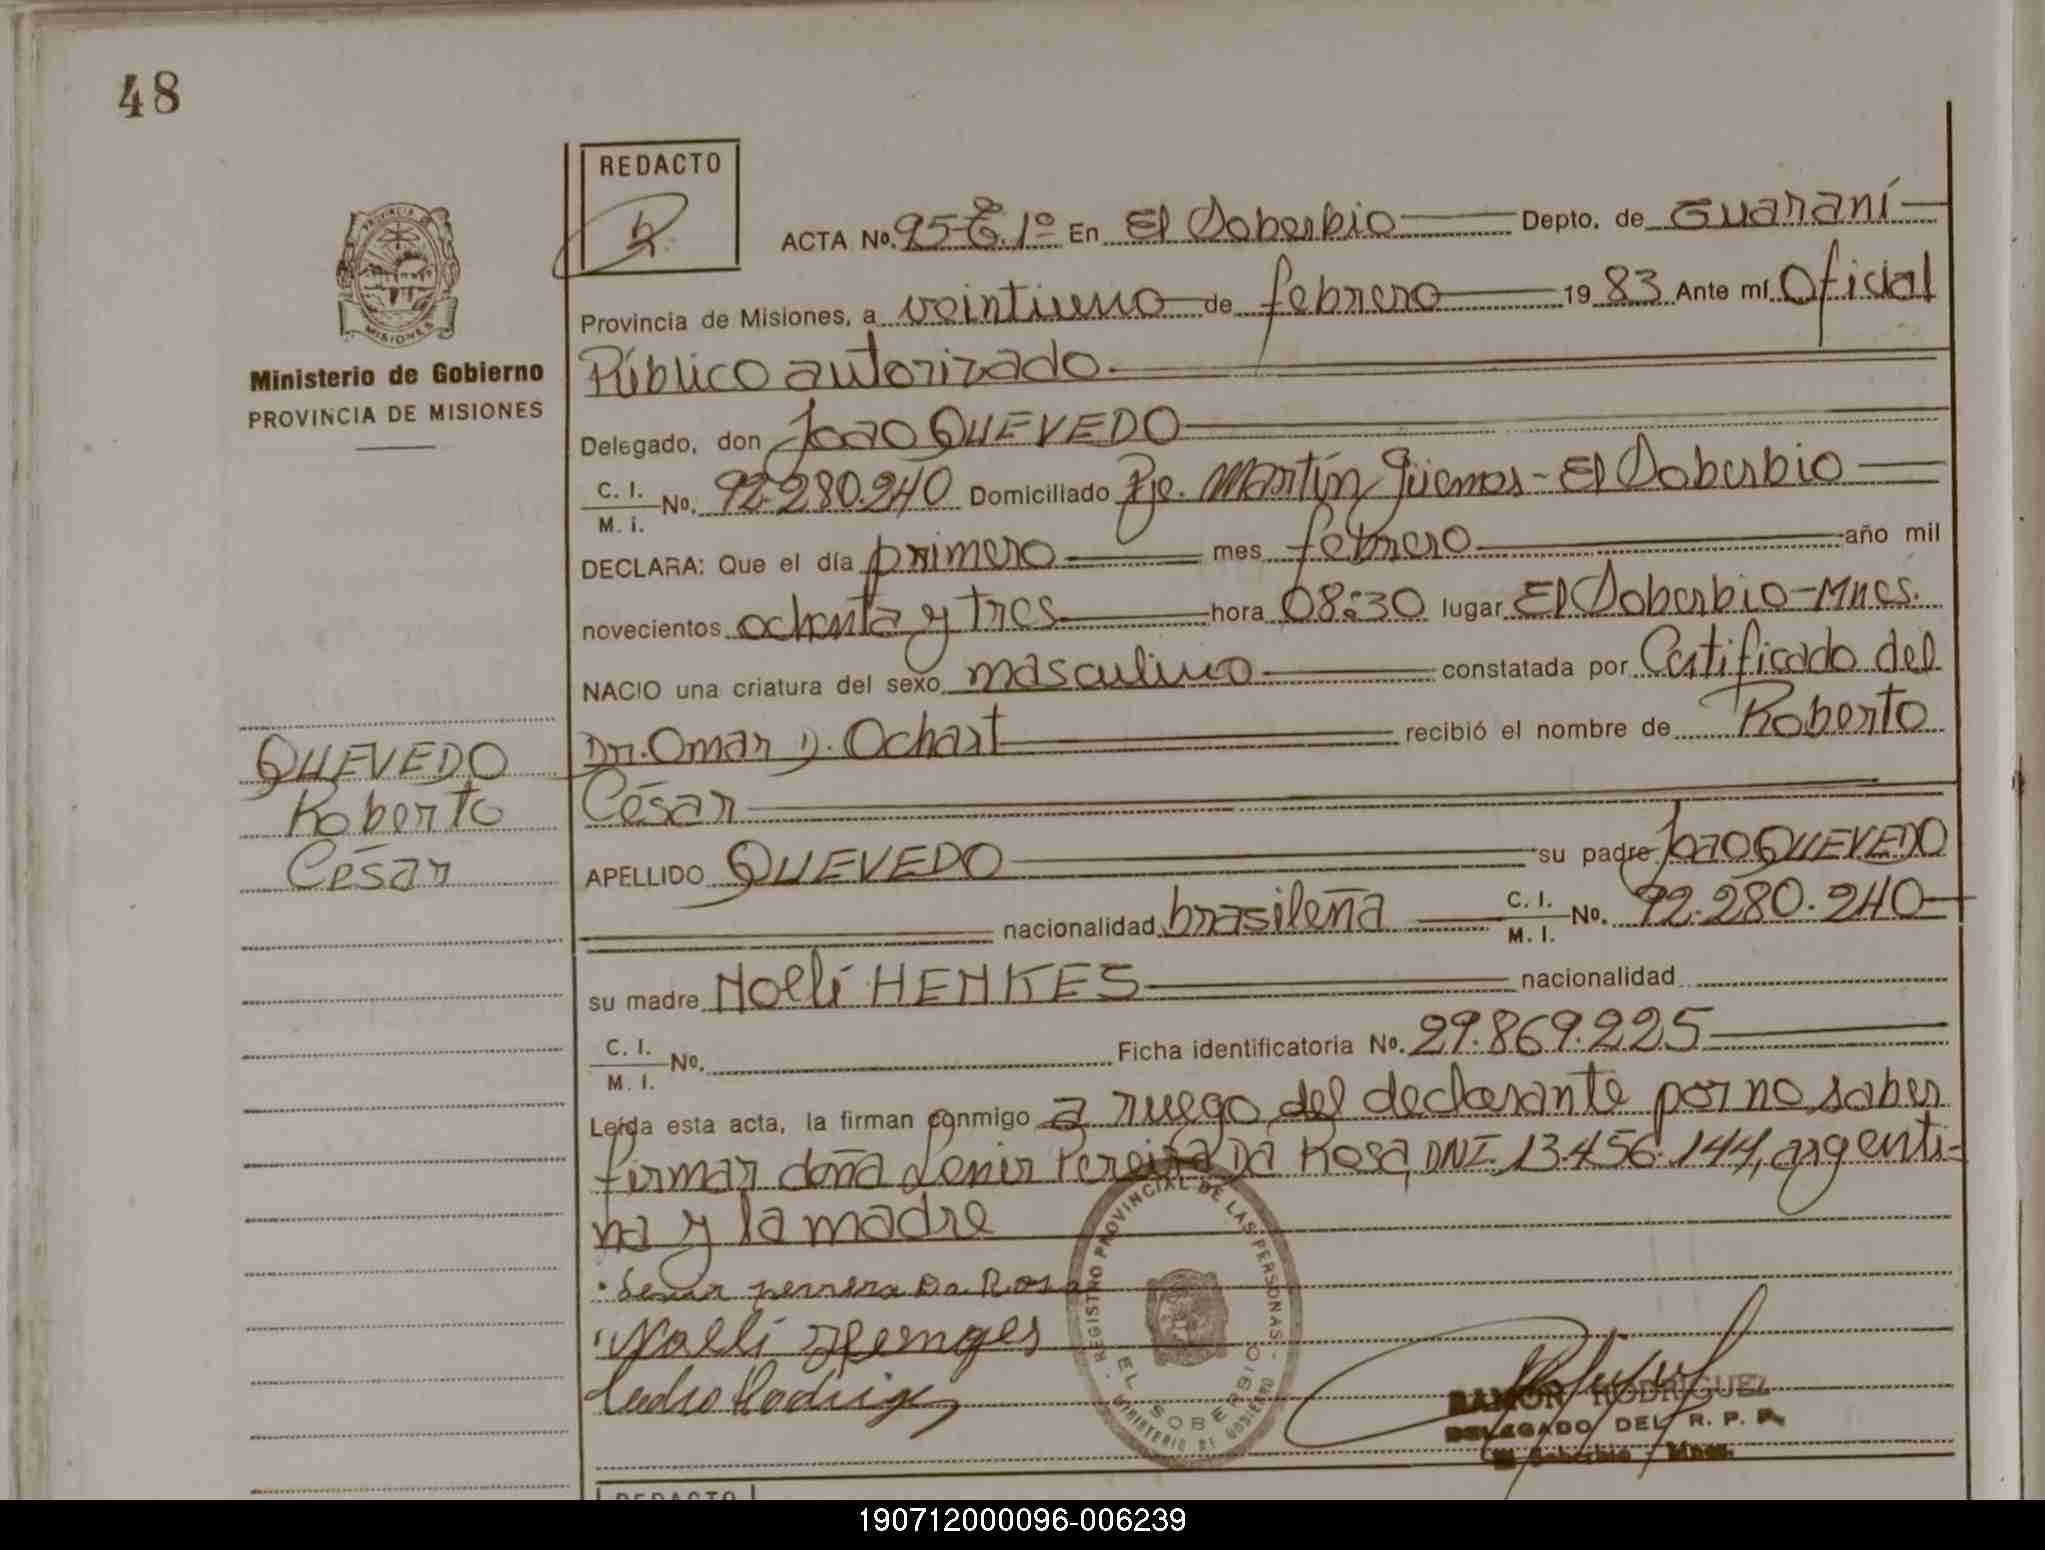 48
REDACTO
ACTA No. 95-T. 1º En El Soberbio Depto. de Guaraní
Provincia de Misiones, a veintiuno de febrero 19 83 Ante mí Oficial
Público autorizado.
Ministerio de Gobierno
PROVINCIA DE MISIONES
Delegado, don Joao QUEVEDO
C. I. / M. I. No. 92.280.240 Domiciliado Pje. Martín Güemes - El Soberbio
DECLARA: Que el día primero mes febrero año mil
novecientos ochenta y tres hora 08:30 lugar El Soberbio-Mnes.
NACIO una criatura del sexo masculino constatada por Certificado del
Dr. Omar D. Ochart recibió el nombre de Roberto
César
QUEVEDO
Roberto
César
APELLIDO QUEVEDO su padre Joao QUEVEDO
nacionalidad brasileña C. I. / M. I. No. 92.280.240
su madre Nolli HENKES nacionalidad
C. I. / M. I. No. Ficha identificatoria No. 29.869.225
Leída esta acta, la firman conmigo a ruego del declarante por no saber
firmar doña Lenir Pereira Da Rosa, DNI. 13.456.144, argenti-
na y la madre
Lenir Da Rosa
Nolli
PROVINCIA DE MISIONES
REGISTRO PROVINCIAL DE LAS PERSONAS
EL SOBERBIO
MINISTERIO DE GOBIERNO
RAMON RODRIGUEZ
DELEGADO DEL R. P. P.
El Soberbio - Mnes.
REDACTO
190712000096-006239